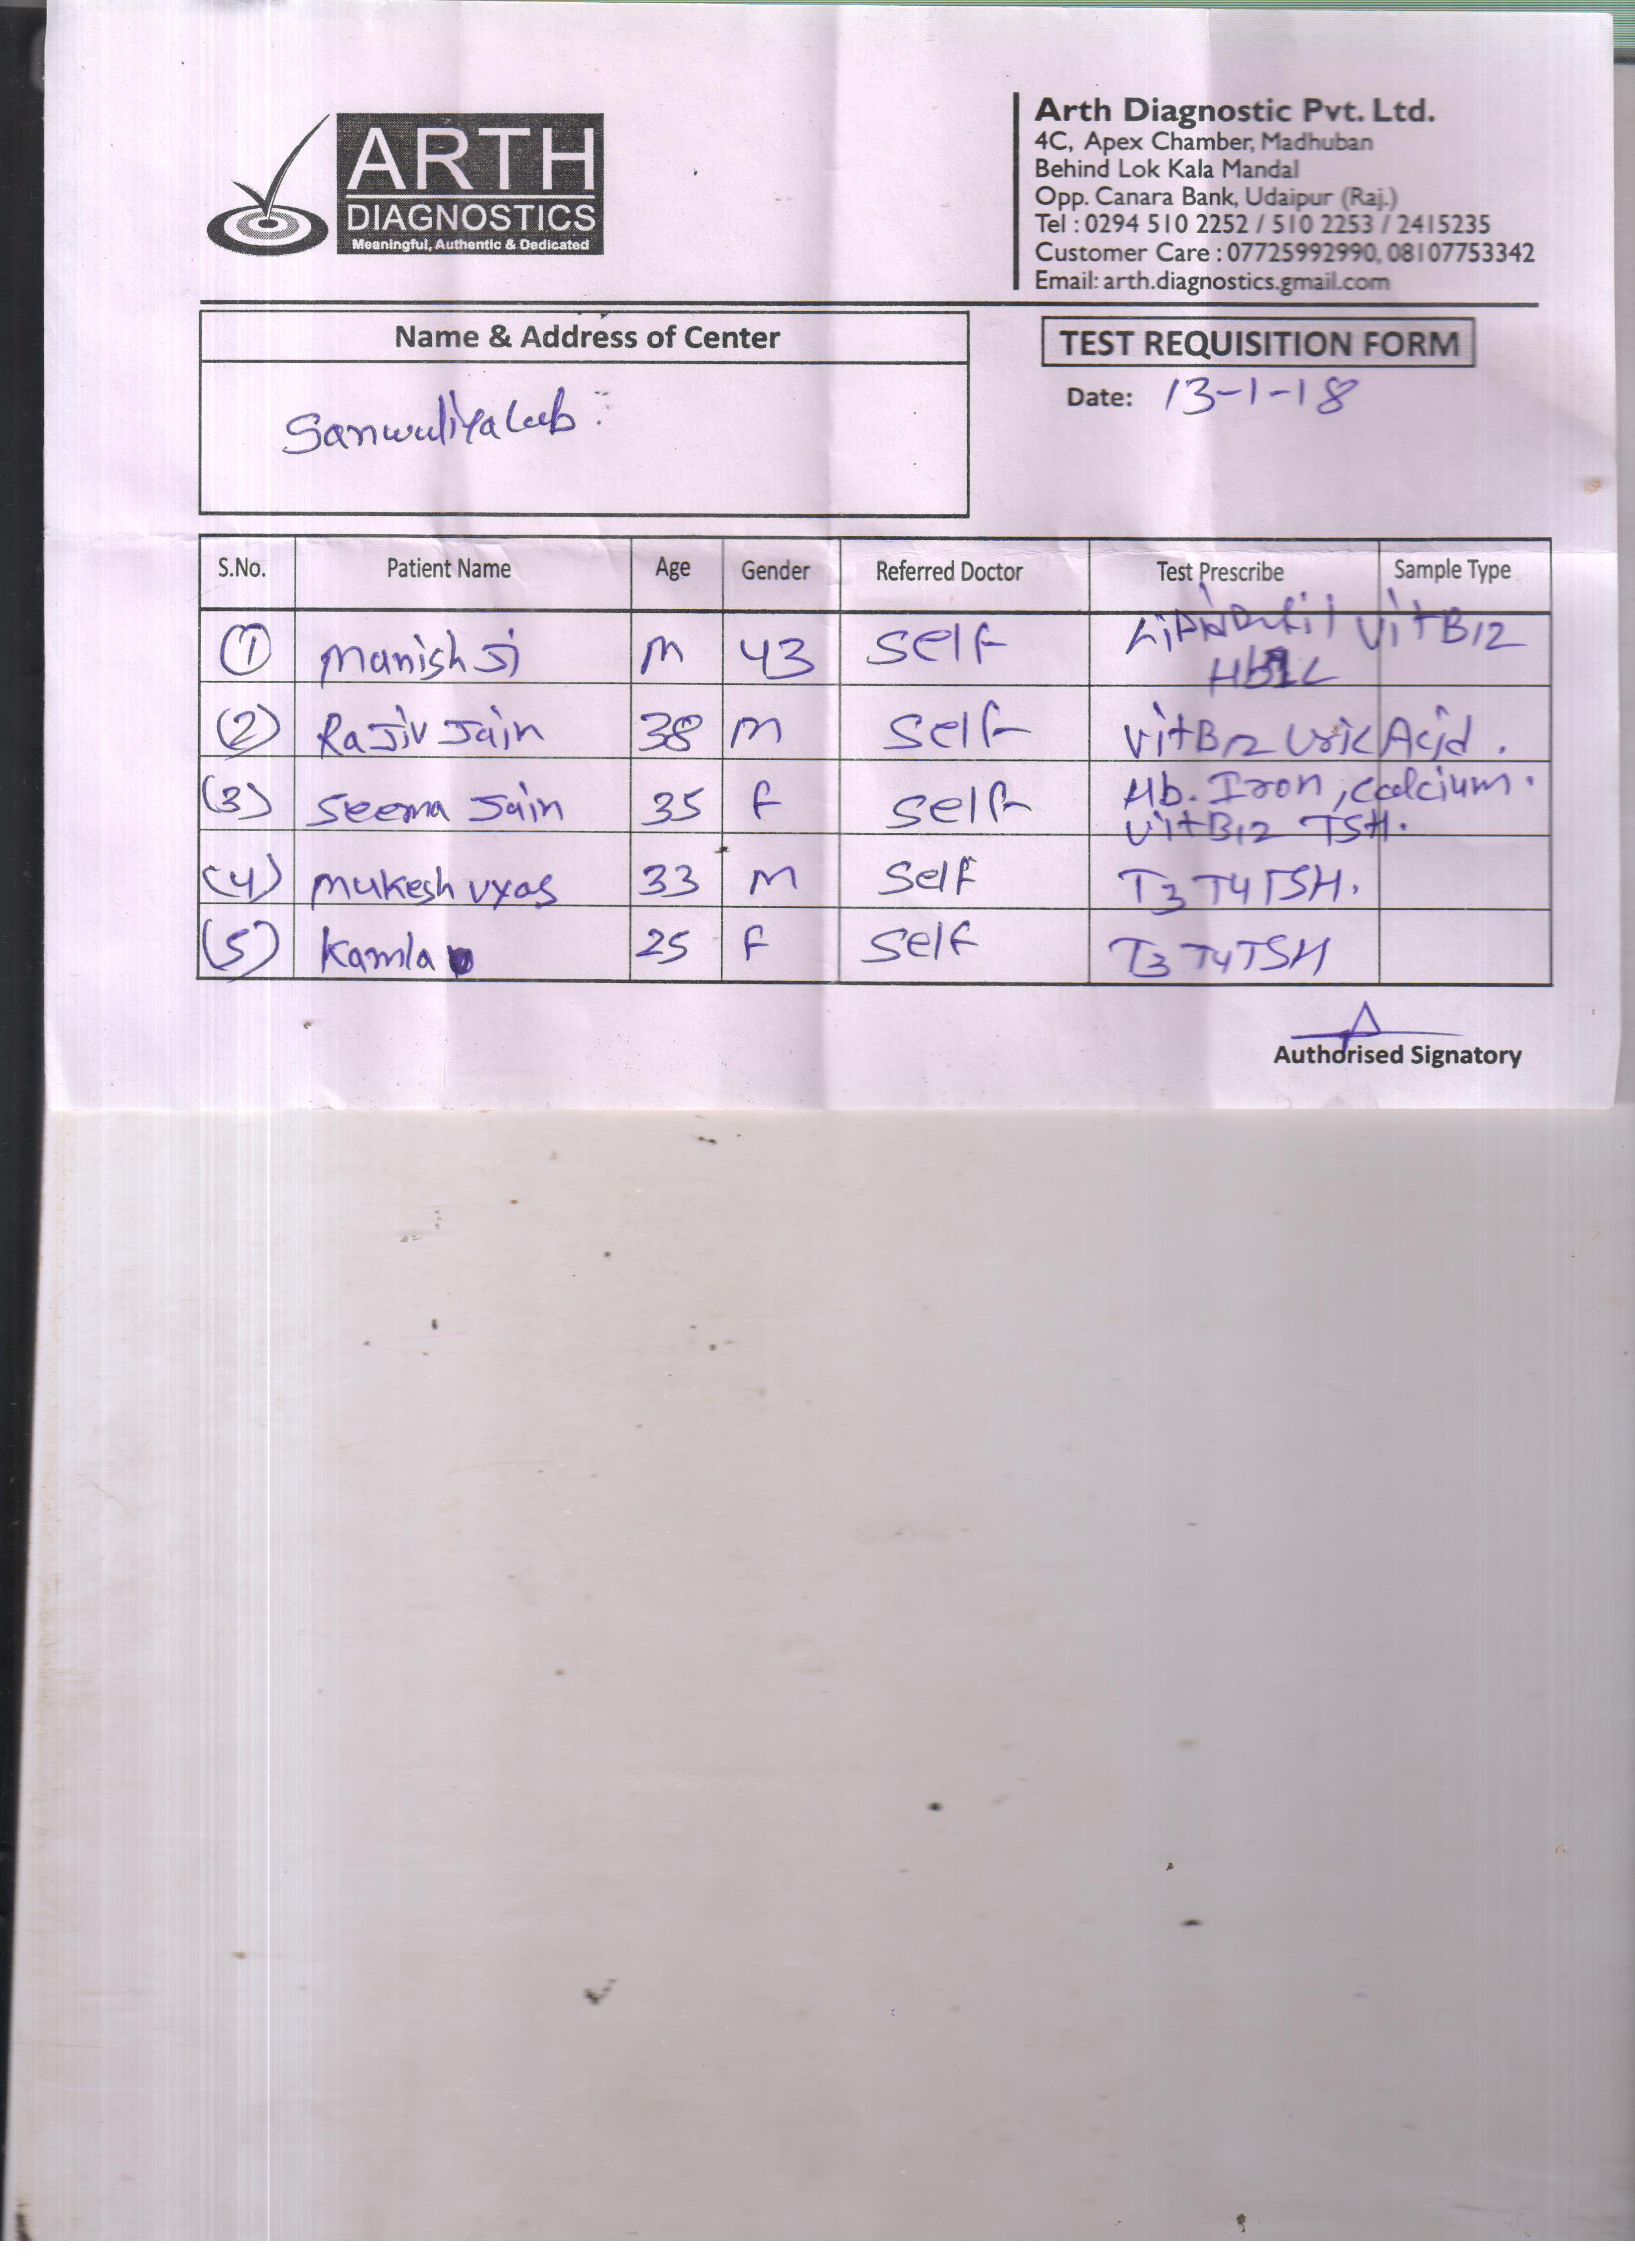 ARTH
DIAGNOSTICS
Meaningful, Authentic & Dedicated
Arth Diagnostic Pvt. Ltd.
4C, Apex Chamber, Madhuban
Behind Lok Kala Mandal
Opp. Canara Bank, Udaipur (Raj.)
Tel : 0294 510 2252 / 510 2253 / 2415235
Customer Care : 07725992990, 08107753342
Email: arth.diagnostics.gmail.com
Name & Address of Center
TEST REQUISITION FORM
Date: 13-1-18
Sanwuliya Lab
S.No. Patient Name Age Gender Referred Doctor Test Prescribe Sample Type
(1) Manish Ji M 43 Self VitB12
(2) Rajiv Jain 38 M Self VitB12 Uric Acid.
(3) Seema Jain 35 F Self Hb. Iron, Calcium.
VitB12 TSH.
(4) Mukesh Vyas 33 M Self T3 T4 TSH.
(5) Kamla 25 F Self T3 T4 TSH
Authorised Signatory